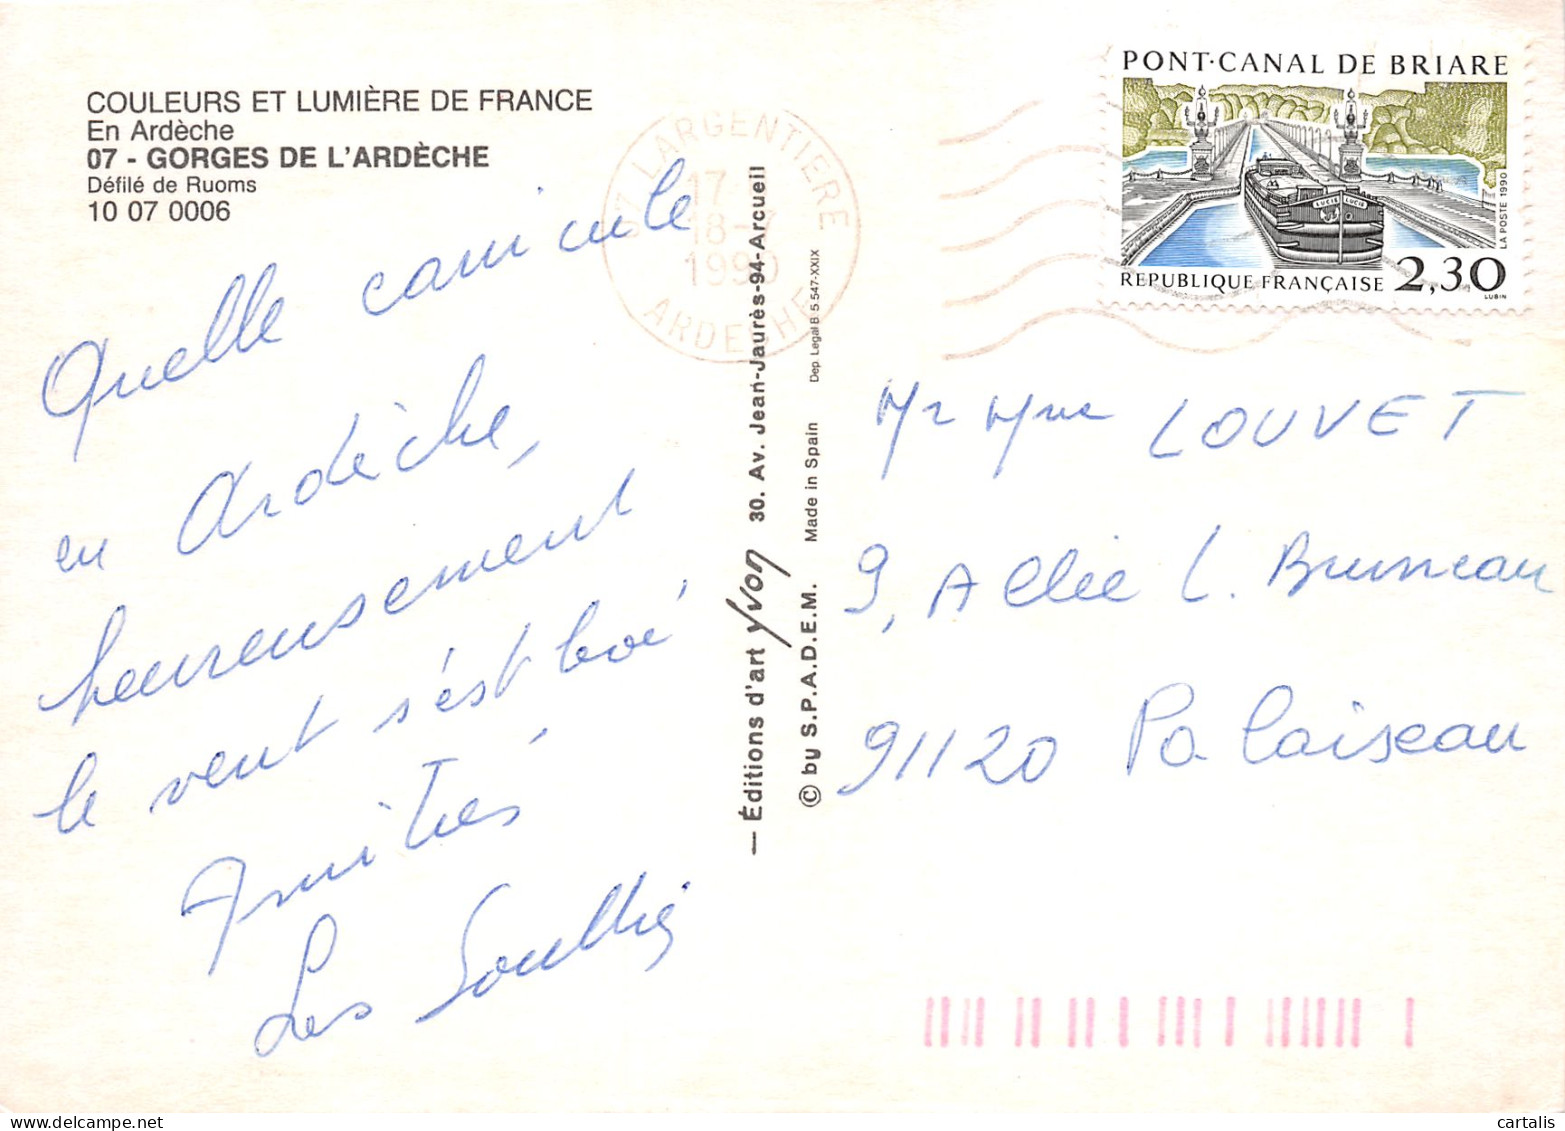 COULEURS ET LUMIÈRE DE FRANCE
En Ardèche
07 - GORGES DE L'ARDÈCHE
Défilé de Ruoms
10 07 0006
Quelle canicule
en Ardèche,
heureusement
le vent s'est levé,
Amitiés
Les
07 LARGENTIERE
17 H
18-7
1990
ARDECHE
— Éditions d'art yvon 30. Av. Jean-Jaurès-94-Arcueil
© by S.P.A.D.E.M. Made in Spain Dep. Legal B. 5 547-XXIX
PONT·CANAL DE BRIARE
LUCIE LUCIE
LA POSTE 1990
REPUBLIQUE FRANÇAISE 2,30
LUBIN
Mr Mme LOUVET
9, Allée L. Bruneau
91120 Palaiseau
cartalis